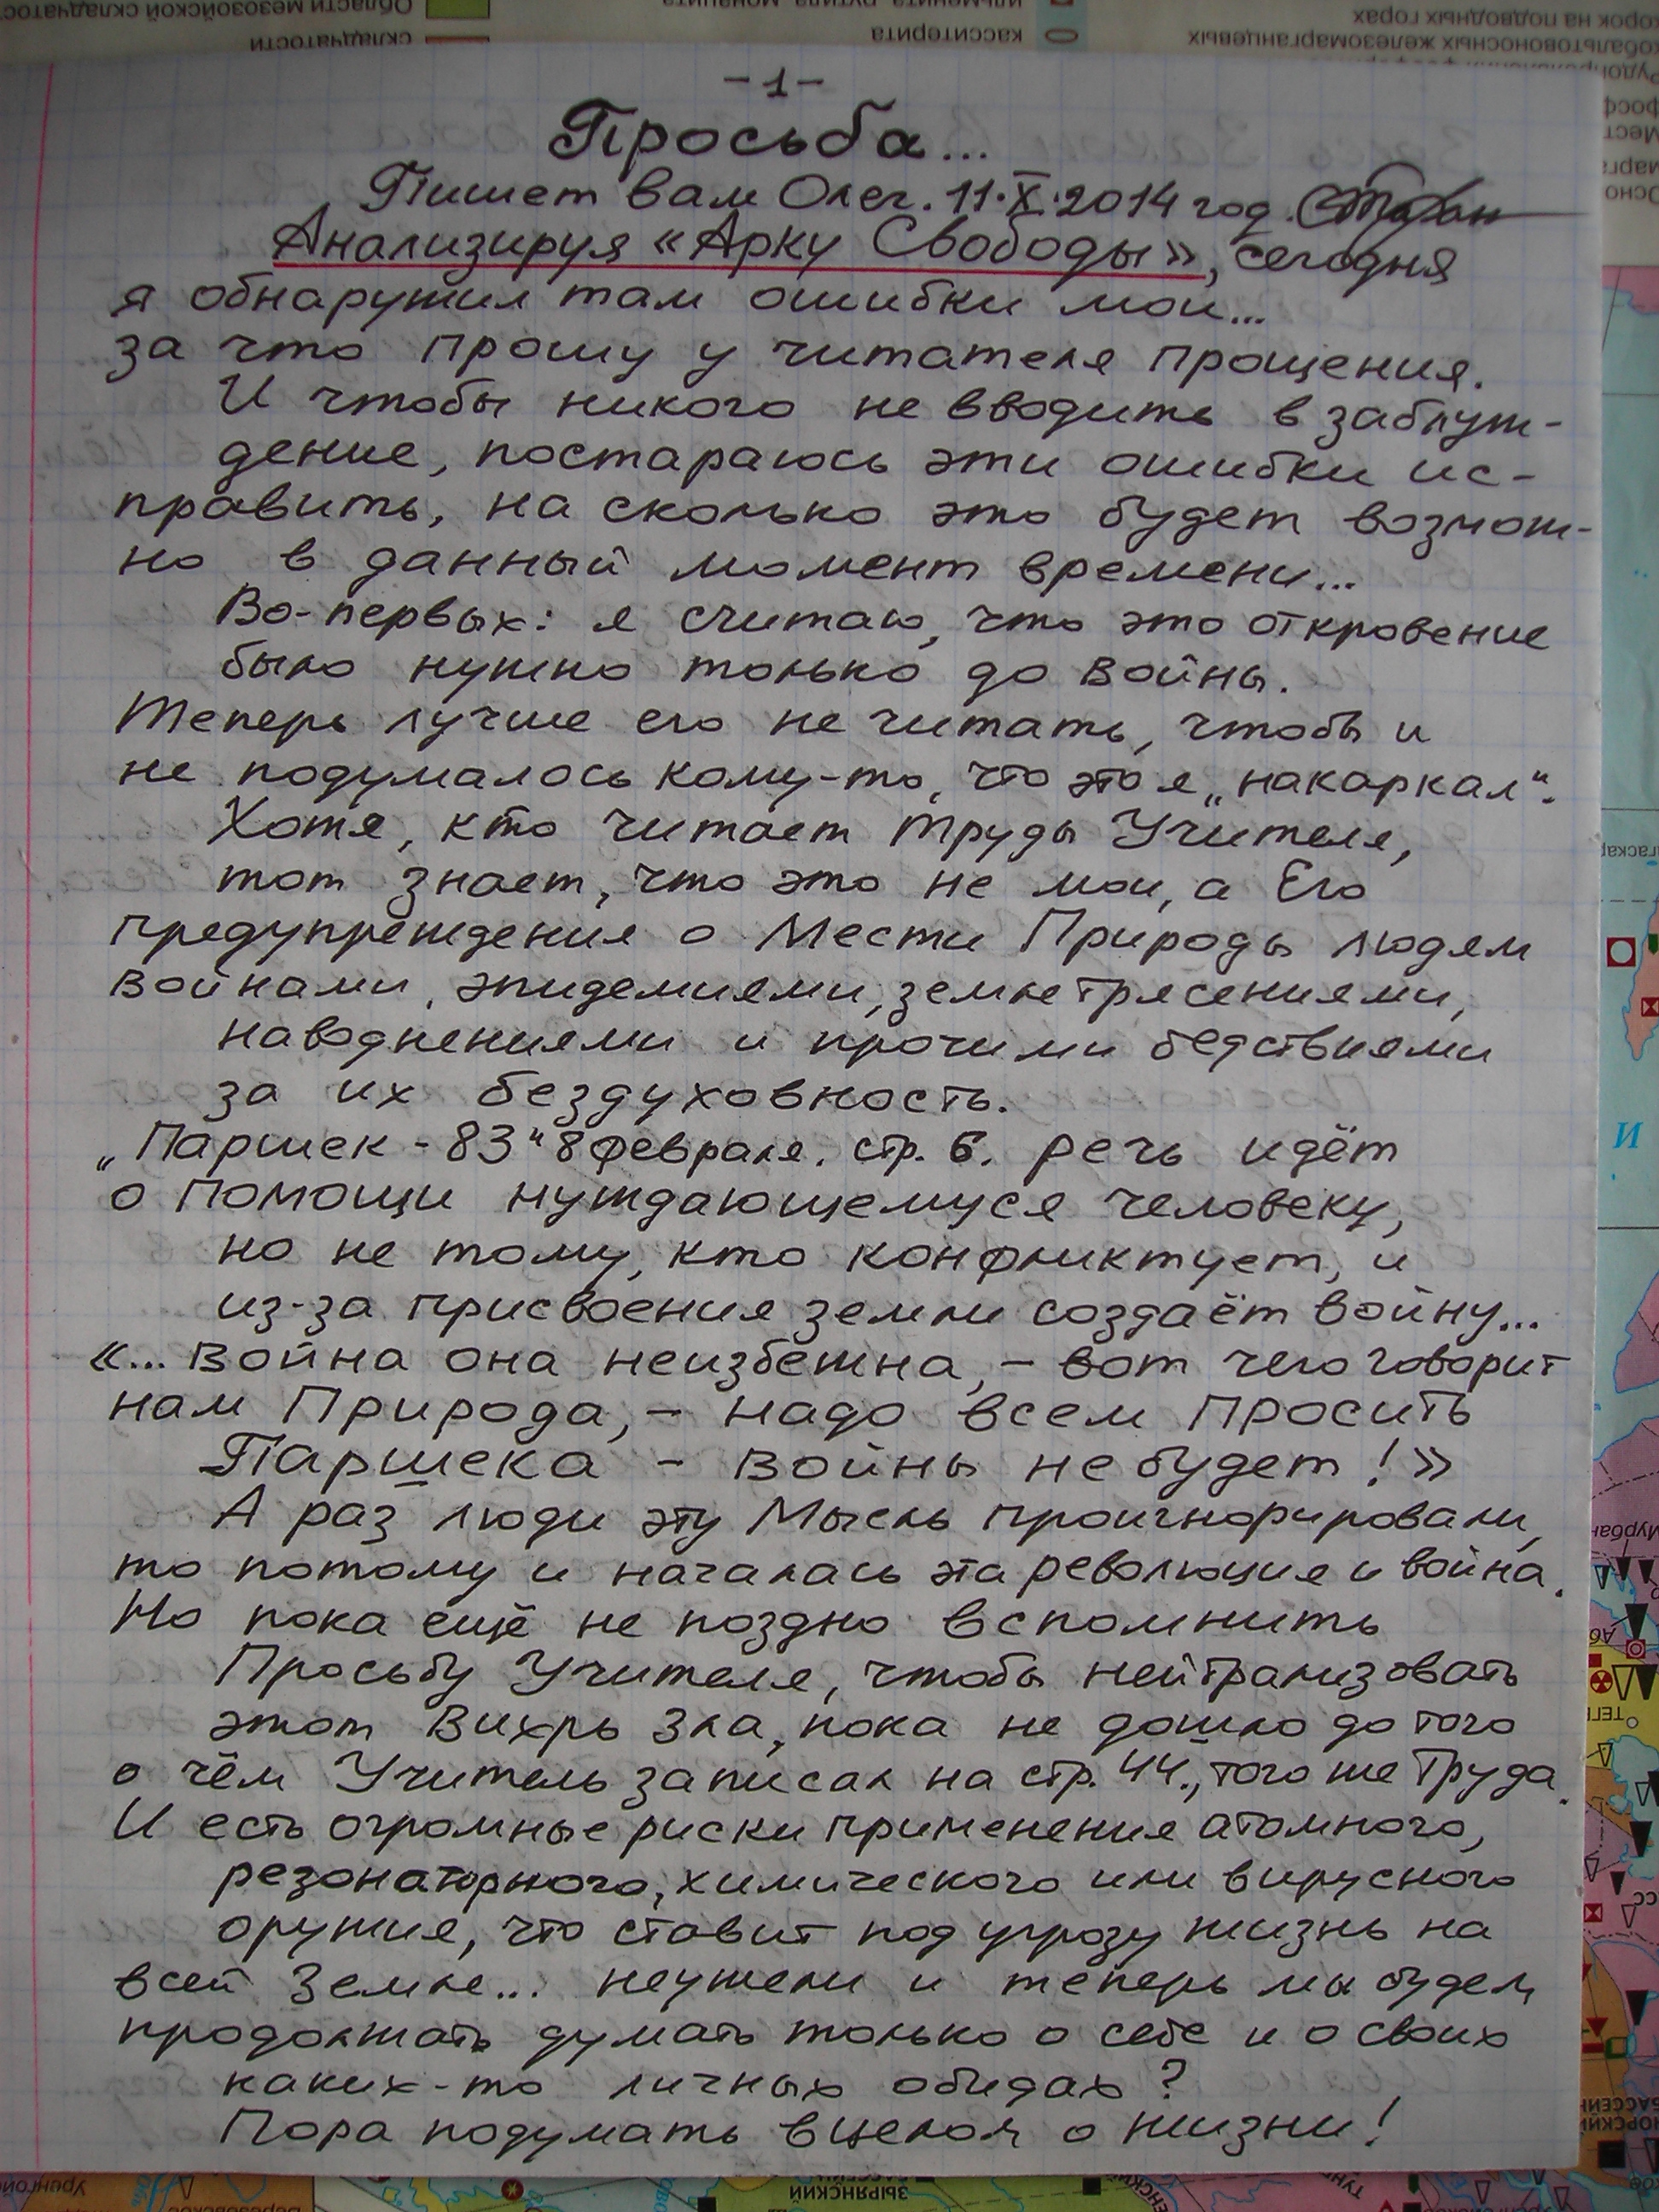 -1-
Просьба...
Пишет вам Олег. 11.X.2014 год.
Анализируя «Арку Свободы», сегодня
я обнаружил там ошибки мои...
за что прошу у читателя прощения.
И чтобы никого не вводить в заблуж-
дение, постараюсь эти ошибки ис-
править, на сколько это будет возмож-
но в данный момент времени...
Во-первых: я считаю, что это откровение
было нужно только до войны.
Теперь лучше его не читать, чтобы и
не подумалось кому-то, что это я „накаркал“.
Хотя, кто читает труды Учителя,
тот знает, что это не мои, а Его
предупреждения о Мести Природы людям
войнами, эпидемиями, землетрясениями,
наводнениями и прочими бедствиями
за их бездуховность.
„Паршек-83“ 8 февраля. стр. 6. речь идёт
о помощи нуждающемуся человеку,
но не тому, кто конфликтует, и
из-за присвоения земли создаёт войну...
«... война она неизбежна, - вот чего говорит
нам Природа, - надо всем просить
Паршека - войны не будет!»
А раз люди эту Мысль проигнорировали,
то потому и началась эта революция и война.
Но пока ещё не поздно вспомнить
Просьбу Учителя, чтобы нейтрализовать
этот Вихрь Зла, пока не дошло до того
о чём Учитель записал на стр. 44., того же Труда.
И есть огромные риски применения атомного,
резонаторного, химического или вирусного
оружия, что ставит под угрозу жизнь на
всей Земле... неужели и теперь мы будем
продолжать думать только о себе и о своих
каких-то личных обидах?
Пора подумать вцелом о жизни!